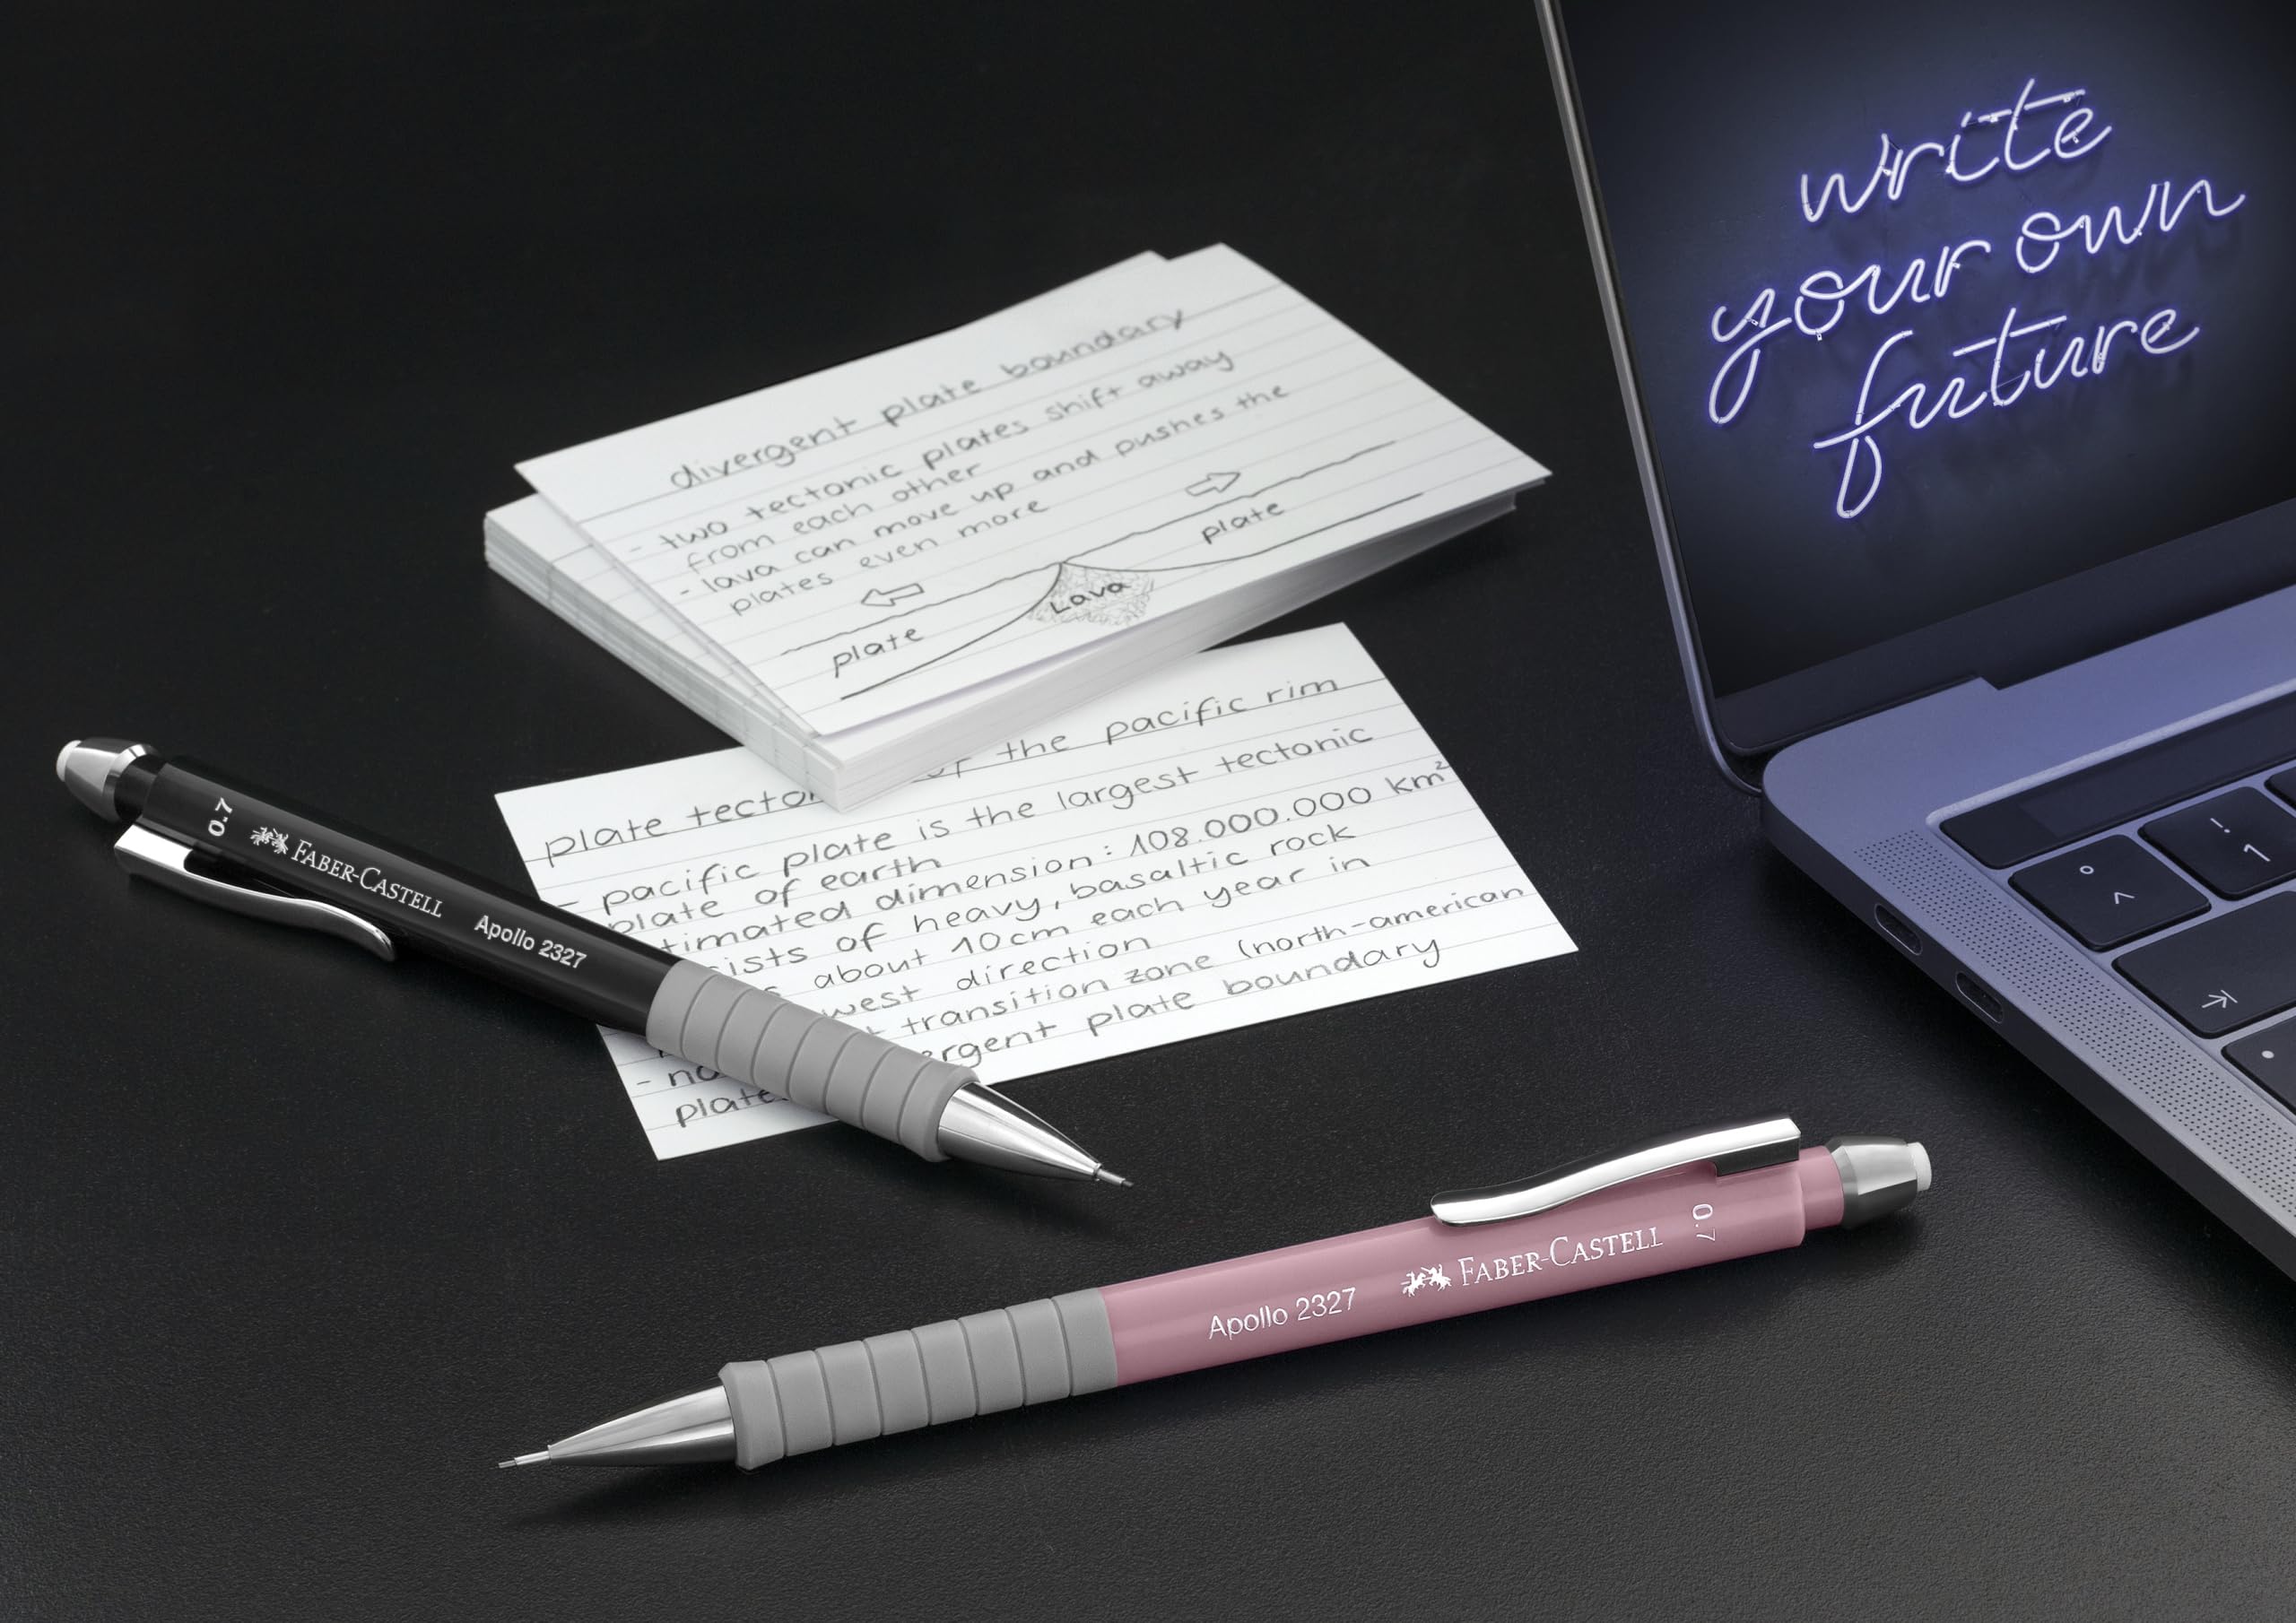 write
your own
future
divergent plate boundary
- two tectonic plates shift away
from each other
- lava can move up and pushes the
plates even more
plate
Lava
plate
plate the pacific rim
- pacific plate is the largest tectonic
plate of earth
dimension: 108.000.000 km²
of heavy, basaltic rock
about 10cm each year in
west direction
transition zone (north-american
plate boundary
-
0.7
FABER-CASTELL
Apollo 2327
Apollo 2327
FABER-CASTELL
0.7
!
1
°
^